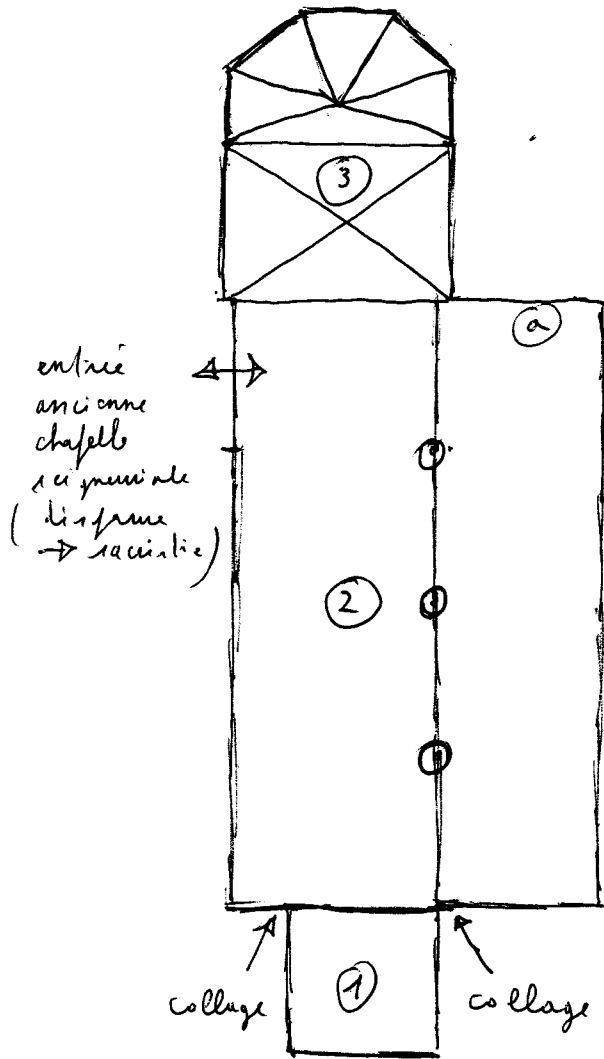 3
a
entrée
ancienne
chapelle
seigneuriale
(disparue
→ sacristie)
2
1
collage
collage